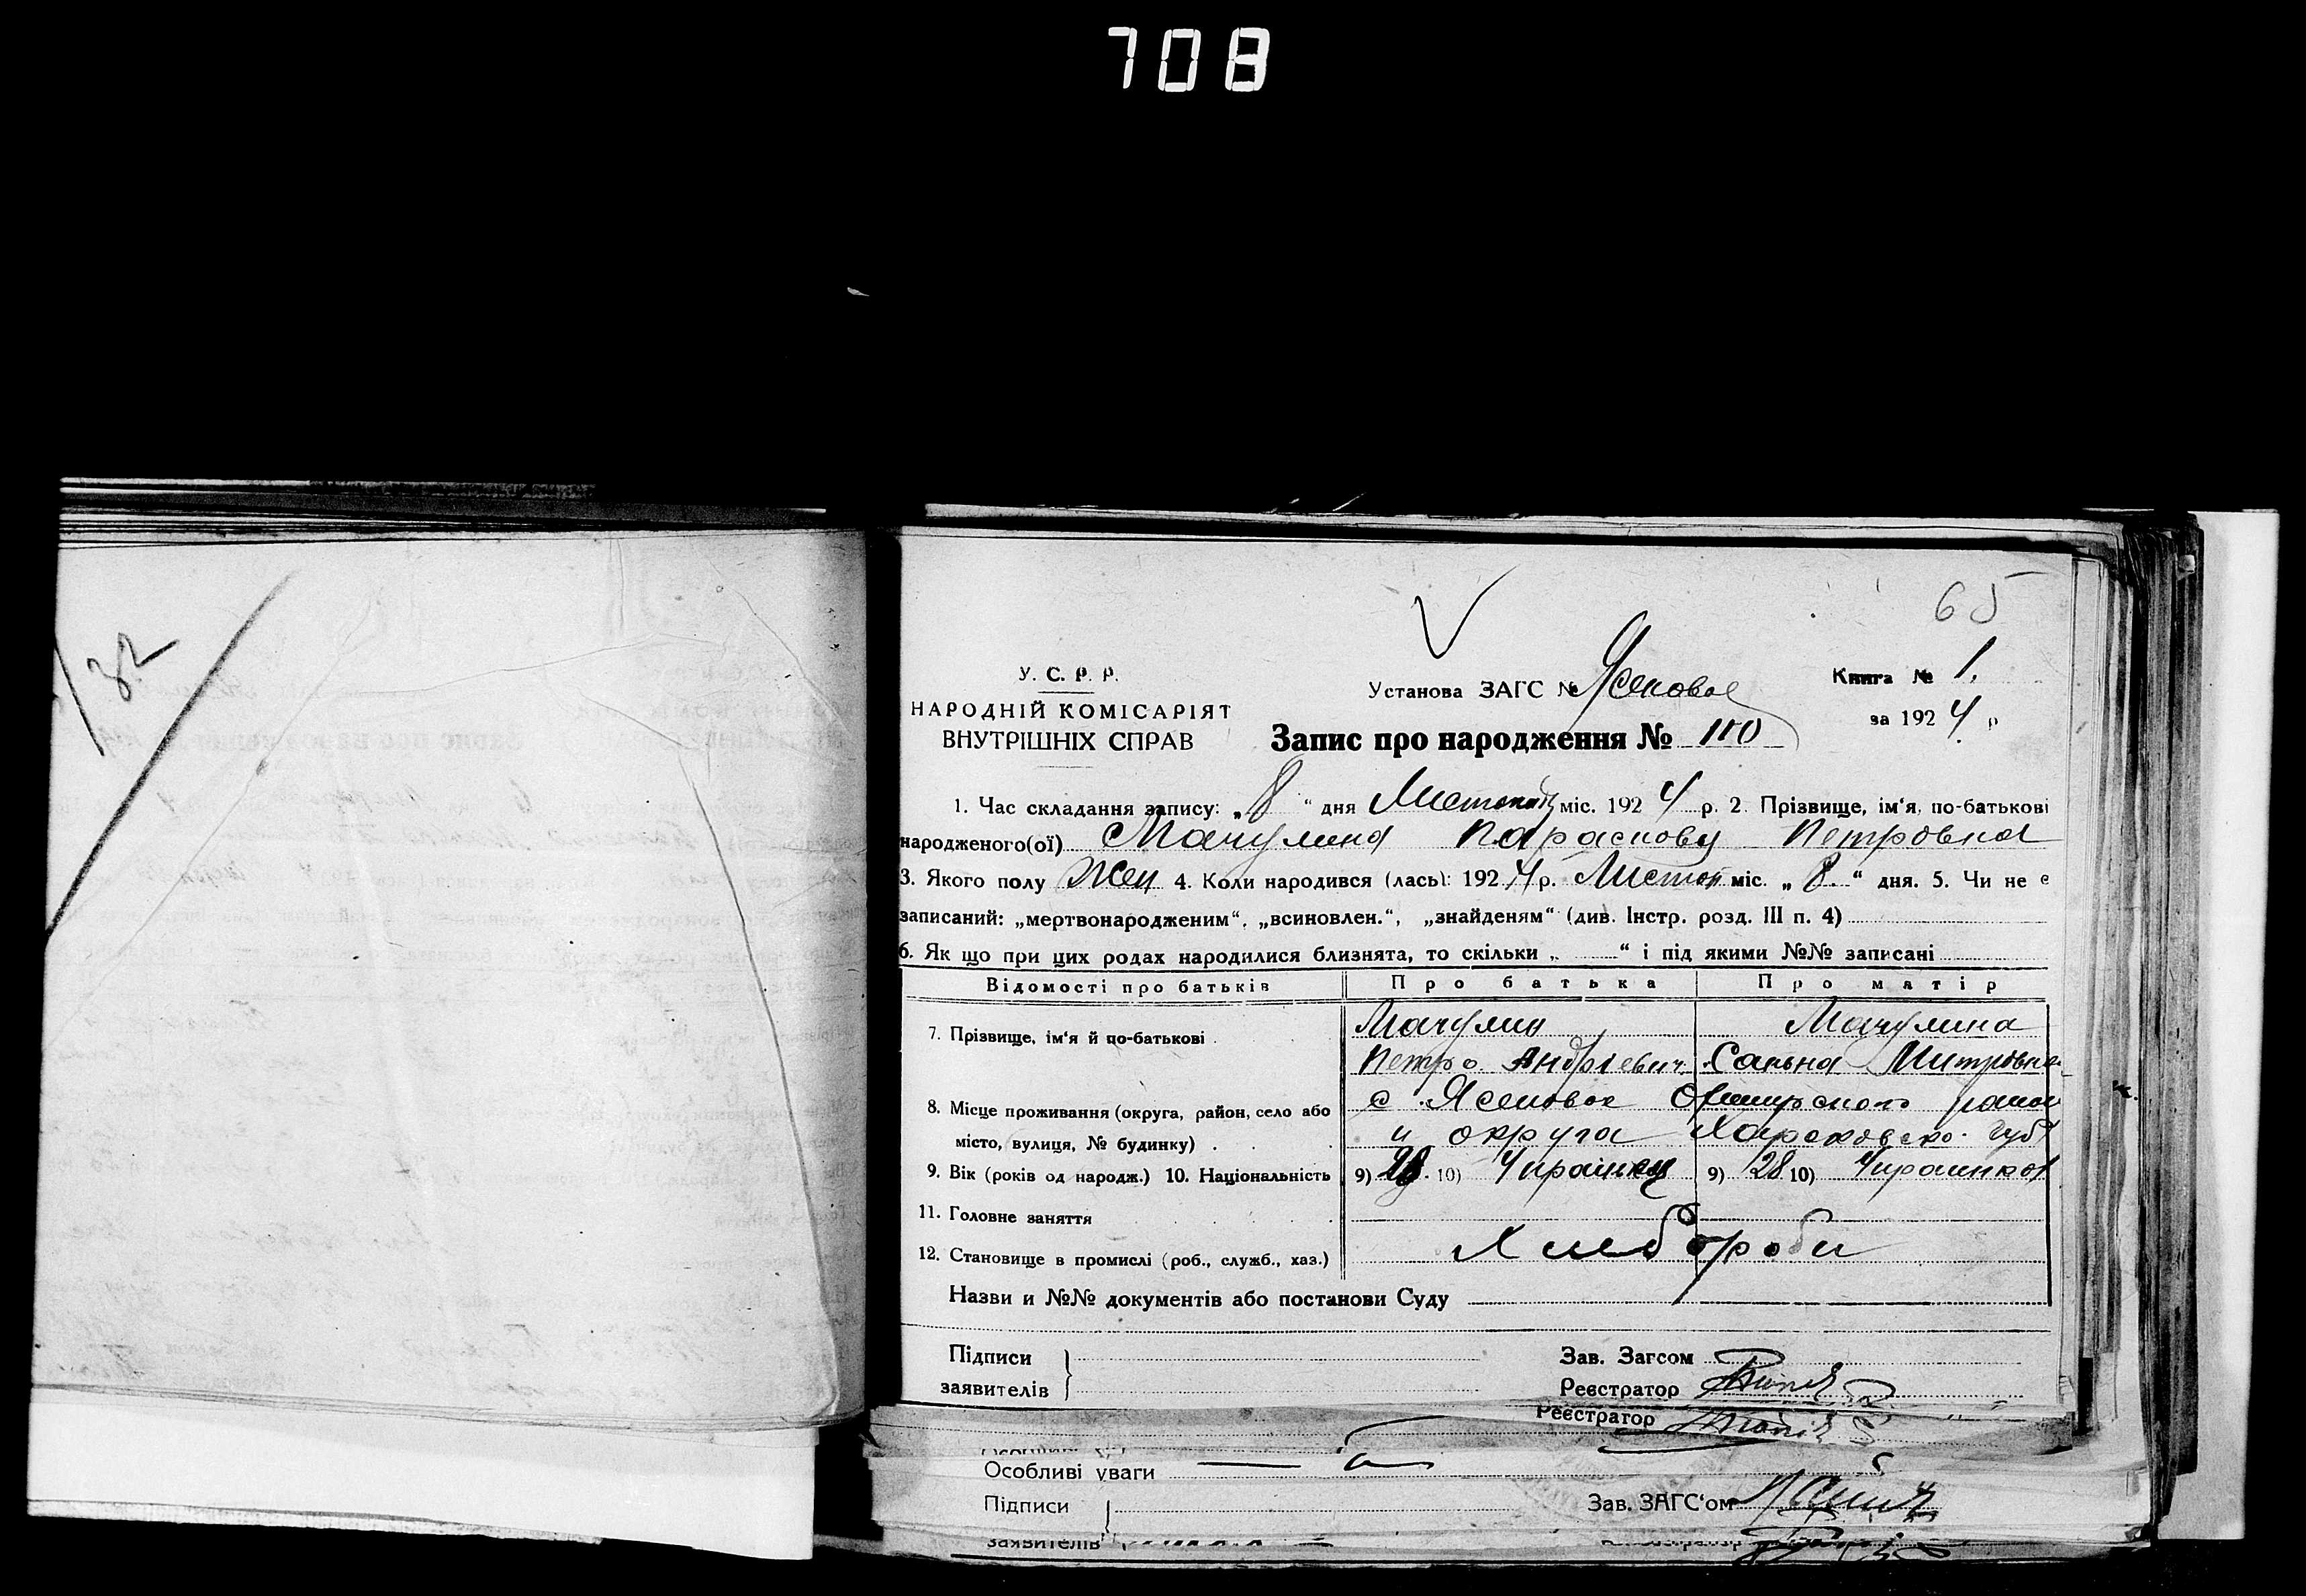 708
65
82
У. С. Р. Р.
НАРОДНІЙ КОМІСАРІЯТ
ВНУТРІШНІХ СПРАВ
Установа ЗАГС № Ясеновое
Книга № 1.
за 1924 р
Запис про народження № 110
1. Час складання запису: „8“ дня Листопад міс. 1924 р. 2. Прізвище, ім‘я, по-батькові
народженого(ої) Мачулина Параскова Петровна
3. Якого полу Жен 4. Коли народився (лась): 1924 р. Листоп міс. „8“ дня. 5. Чи не є
записаний: „мертвонародженим“, „всиновлен.“, „знайденям“ (див. Інстр. розд. III п. 4)
6. Як що при цих родах народилися близнята, то скільки „ “ і під якими №№ записані
Відомості про батьків Про батька Про матір
7. Прізвище, ім‘я й по-батькові Мачулин Мачулина
Петро Андріевич Митровна
8. Місце проживання (округа, район, село або с. Ясеновое
місто, вулиця, № будинку) и округа Харсковско губ
9. Вік (років од народж.) 10. Національність 9) 28 10) 9) 28 10) Украинка
11. Головне заняття
12. Становище в промислі (роб., служб., хаз.) Хлебороби
Назви и №№ документів або постанови Суду
Підписи
заявителів
Зав. Загсом
Реєстратор
Реєстратор
Особливі уваги
Підписи
Зав. ЗАГС‘ом
заявителів